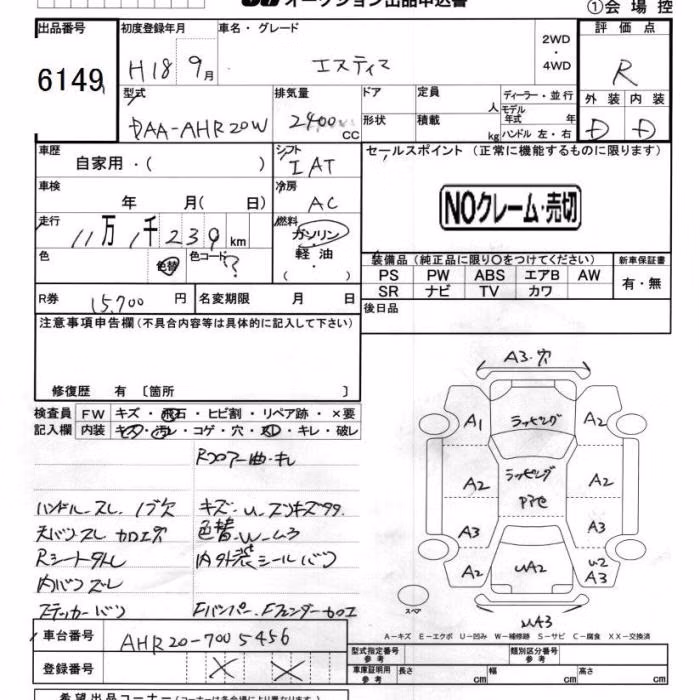 オークション出品申込書
①会場控
出品番号
6149
初度登録年月
H18 9月
車名・グレード
エスティマ
2WD
・
4WD
評価点
R
外装 内装
D D
型式
DAA-AHR20W
排気量
2400cc
ドア
形状
定員 人
積載 kg
ディーラー・並行
モデル
年式 年
ハンドル 左・右
車歴
自家用・( )
シフト
IAT
セールスポイント (正常に機能するものに限ります)
NOクレーム・売切
車検
年 月( 日)
冷房
AC
走行
11万1千239km
燃料
ガソリン
・
軽油
( )
色
色替
色コード ?
装備品 (純正品に限り○をつけてください)
PS PW ABS エアB AW
SR ナビ TV カワ
新車保証書
有・無
R券 15,700円
名変期限 月 日
後日品
注意事項申告欄 (不具合内容等は具体的に記入して下さい)
修復歴 有 〔箇所 〕
検査員
記入欄
FW キズ・飛石・ヒビ割・リペア跡・×要
内装 キズ・汚レ・コゲ・穴・凹・キレ・破レ
Rフロアー曲・キレ
ハンドルスレ ノブ欠
キズ・U・スリキズ多々
天バリスレ カロエズ
色替 W-L3
Rシート外し
内外装シールハゲ
内バリズレ
ステッカーハゲ
Fバンパー・Fフェンダーカロエ
A3・穴
A1
ラッピング
A2
A2
ラッピング
A2
A3
A3
A2
UA2
U2
A3
スペア
UA3
A-キズ E-エクボ U-凹み W-補修跡 S-サビ C-腐食 XX-交換済
車台番号
AHR20-7005456
登録番号
X X
型式指定番号
参考
類別区分番号
参考
車庫証明用
参考
長さ cm
幅 cm
高さ cm
希望出品コーナー